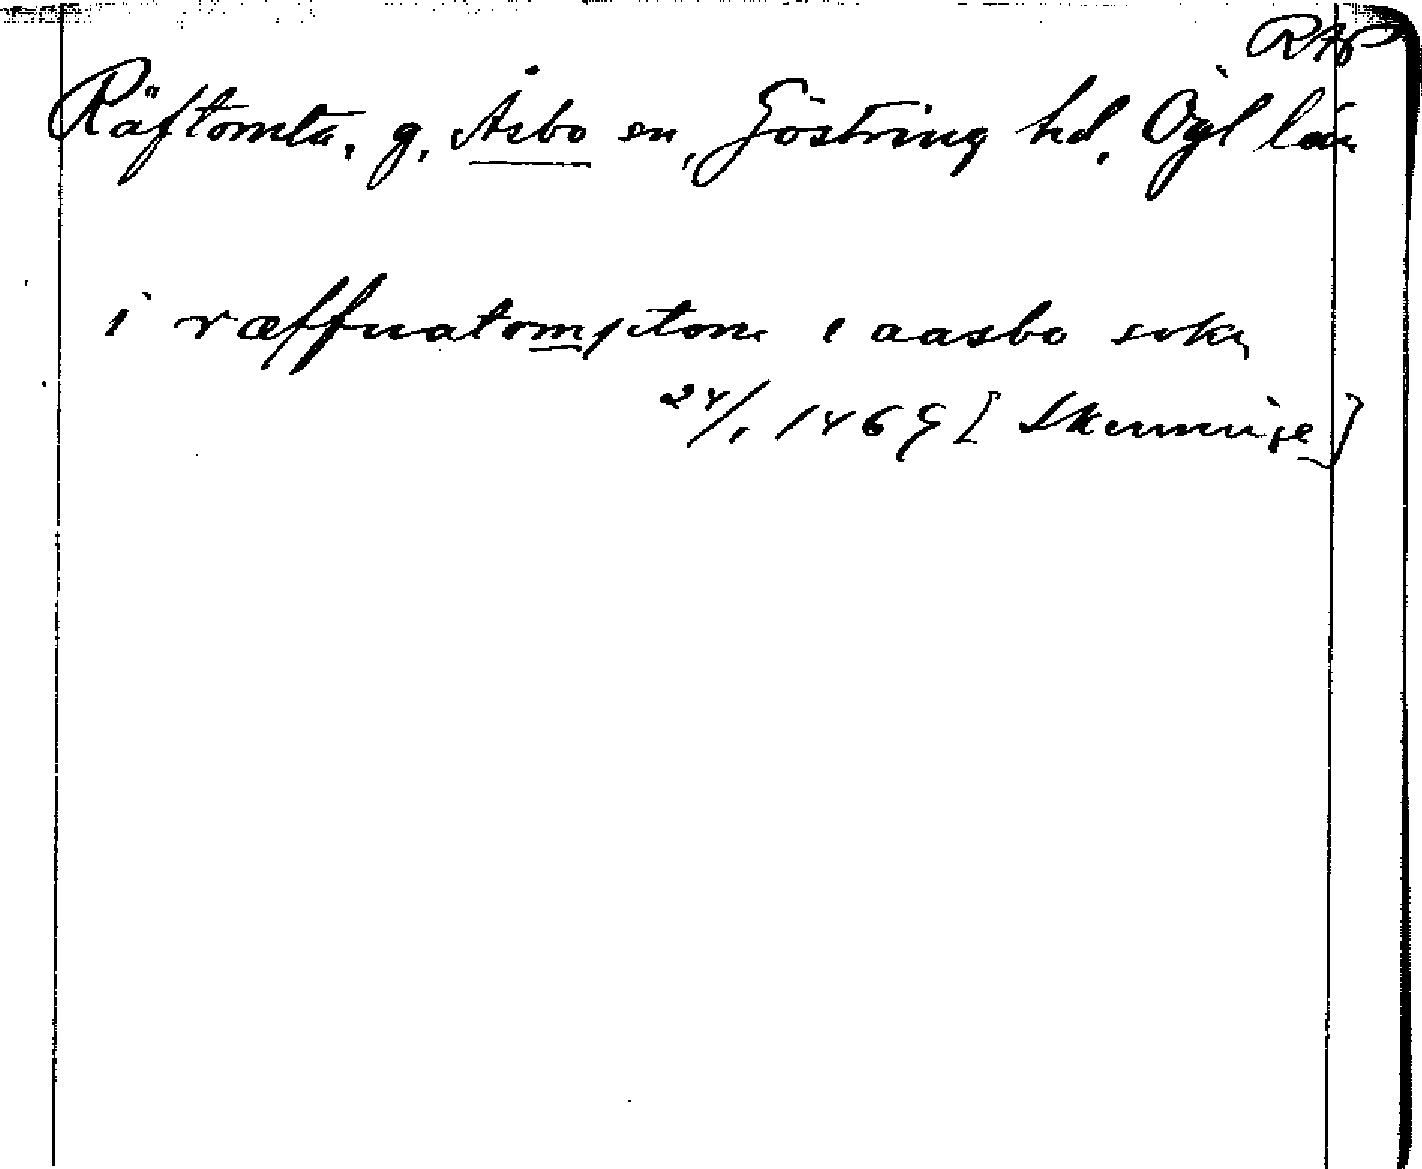 RAP
Räftomta, g, Åsbo sn, Göstring hd, Ögl län
i ræffuatomptom i aasbo sokn
24/1 1469 [Skenninge]